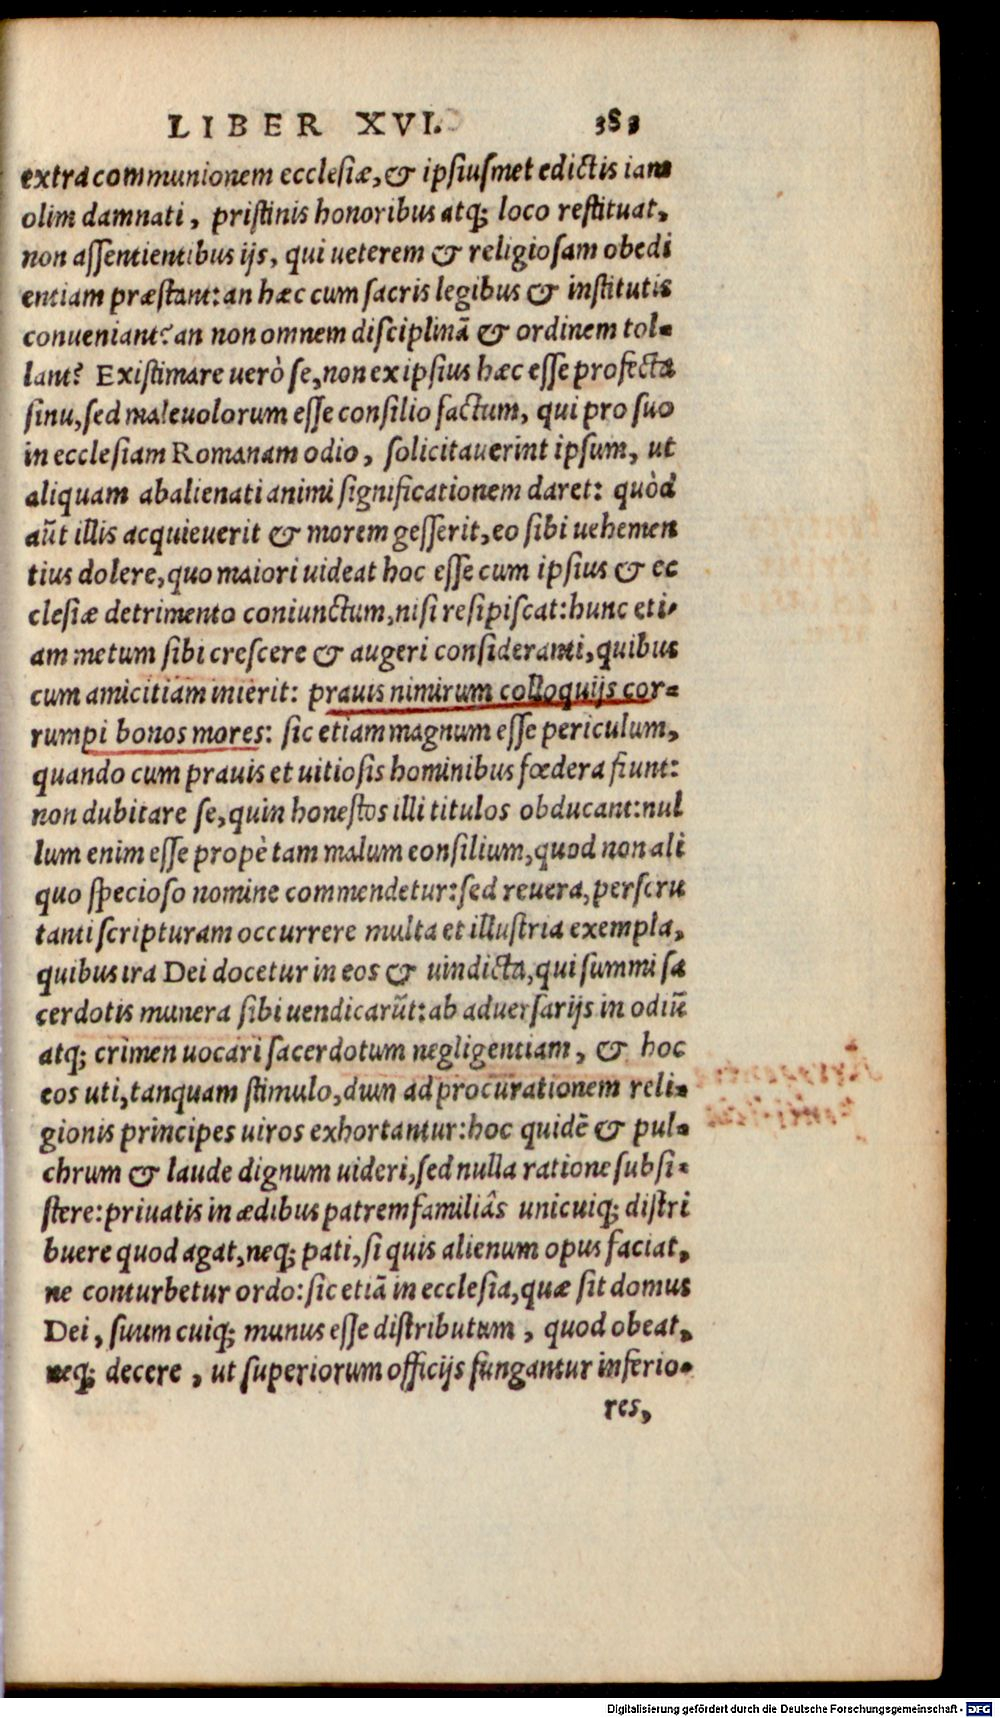 LIBER XVI. 383
extra communionem ecclesiæ, & ipsiusmet edictis iam
olim damnati, pristinis honoribus atq; loco restituat,
non assentientibus ijs, qui ueterem & religiosam obedi
entiam præstant: an hæc cum sacris legibus & institutis
conueniant? an non omnem disciplinã & ordinem tol-
lant? Existimare uerò se, non ex ipsius hæc esse profecta
sinu, sed maleuolorum esse consilio factum, qui pro suo
in ecclesiam Romanam odio, solicitauerint ipsum, ut
aliquam abalienati animi significationem daret: quòd
aũt illis acquieuerit & morem gesserit, eo sibi uehemen
tius dolere, quo maiori uideat hoc esse cum ipsius & ec
clesiæ detrimento coniunctum, nisi resipiscat: hunc eti-
am metum sibi crescere & augeri consideranti, quibus
cum amicitiam inierit: prauis nimirum colloquijs cor-
rumpi bonos mores: sic etiam magnum esse periculum,
quando cum prauis et uitiosis hominibus fœdera fiunt:
non dubitare se, quin honestos illi titulos obducant: nul
lum enim esse propè tam malum consilium, quod non ali
quo specioso nomine commendetur: sed reuera, perscru
tanti scripturam occurrere multa et illustria exempla,
quibus ira Dei docetur in eos & uindicta, qui summi sa
cerdotis munera sibi uendicarũt: ab aduersarijs in odiũ
atq; crimen uocari sacerdotum negligentiam, & hoc
eos uti, tanquam stimulo, dum ad procurationem reli-
gionis principes uiros exhortantur: hoc quidẽ & pul-
chrum & laude dignum uideri, sed nulla ratione subsi-
stere: priuatis in ædibus patremfamiliâs unicuiq; distri
buere quod agat, neq; pati, si quis alienum opus faciat,
ne conturbetur ordo: sic etiã in ecclesia, quæ sit domus
Dei, suum cuiq; munus esse distributum, quod obeat,
neq; decere, ut superiorum officijs fungantur inferio-
res,
Digitalisierung gefördert durch die Deutsche Forschungsgemeinschaft - DFG